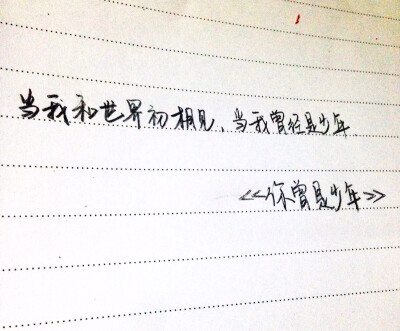 当我和世界初相见、当我曾经是少年
<<你曾是少年>>